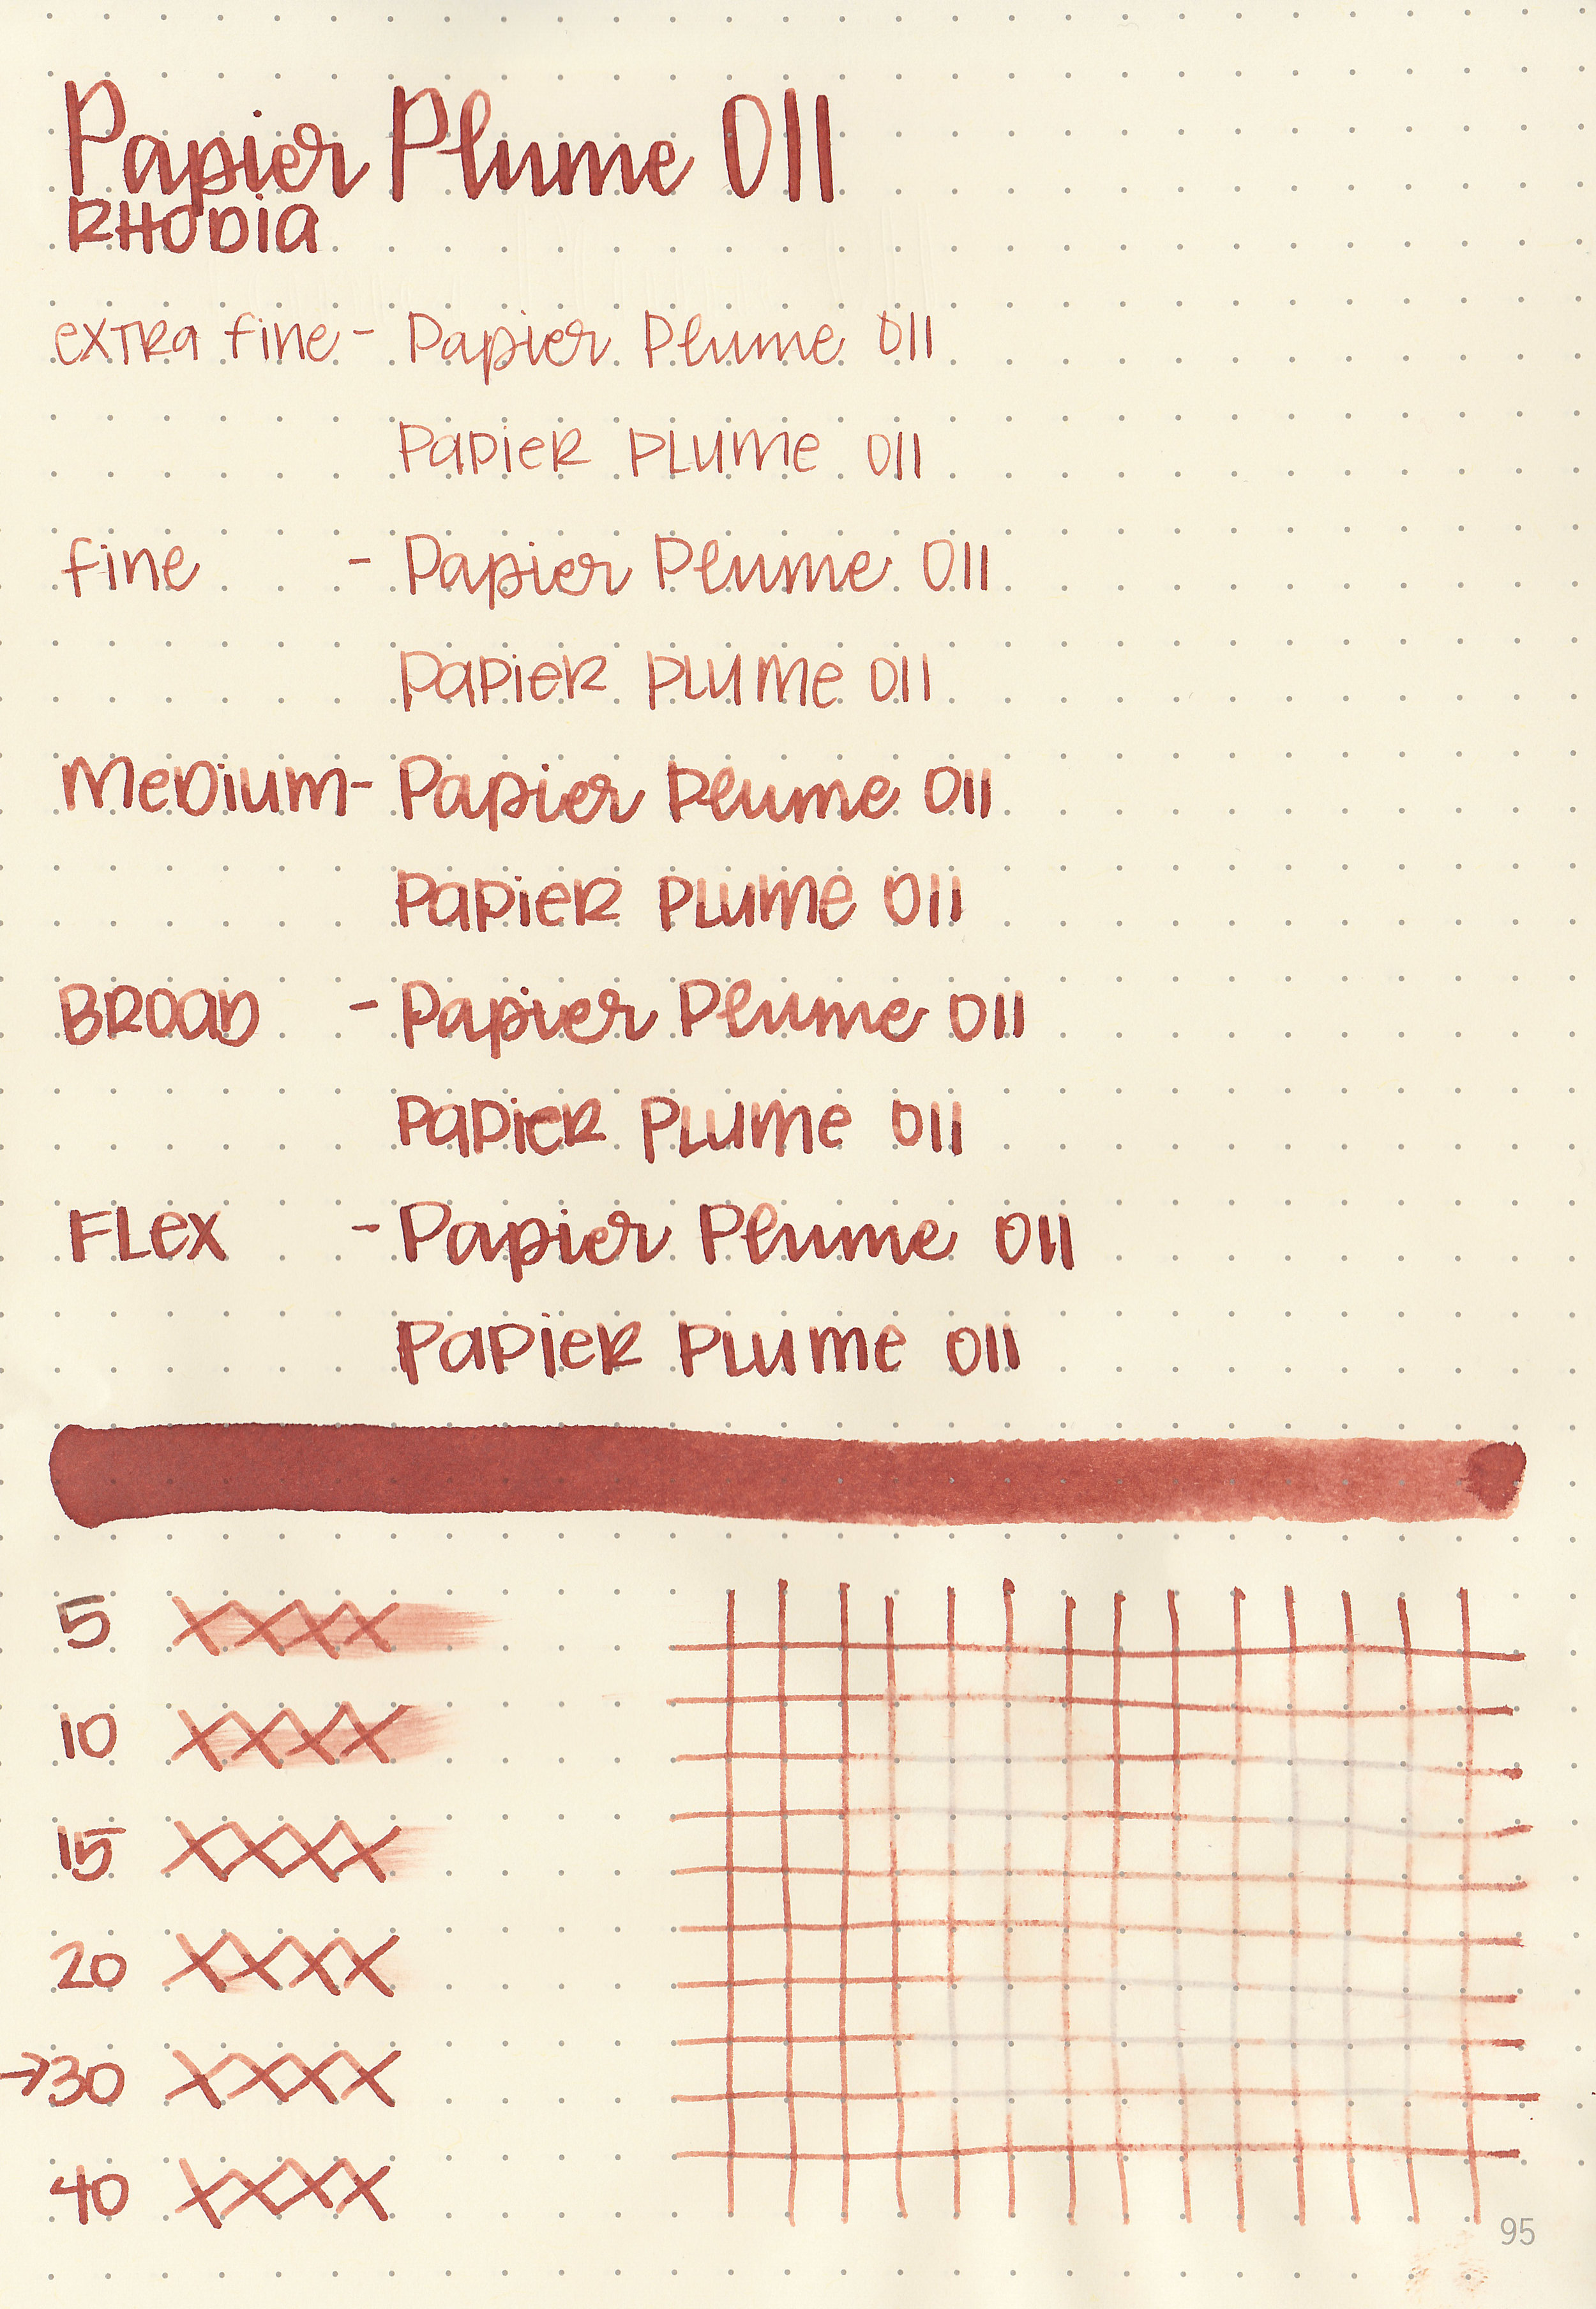 Papier Plume 011
RHODIA
extra fine - Papier Plume 011
Papier Plume 011
fine - Papier Plume 011
Papier Plume 011
Medium - Papier Plume 011
Papier Plume 011
Broad - Papier Plume 011
Papier Plume 011
Flex - Papier Plume 011
Papier Plume 011
5 XXXX
10 XXXX
15 XXXX
20 XXXX
→30 XXXX
40 XXXX
95